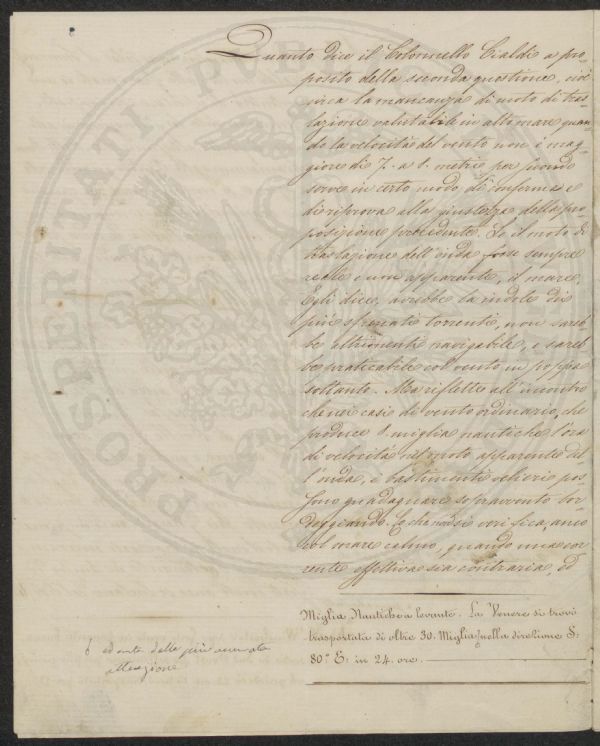 Quanto dice il Colonnello Cialdi a pro-
posito della seconda questione, cioè
circa la mancanza di moto di tras-
lazione valutabile in alto mare quan-
do la velocità del vento non è mag-
giore di 7. a 8. metri per secondo
serve in certo modo di conferma e
di riprova alla giustezza della pro-
posizione precedente. Se il moto di
traslazione dell'onda fosse sempre
reale e non apparente, il mare,
Egli dice, avrebbe la indole dei
più sfrenati torrenti, non sareb-
be altrimenti navigabile, e sareb-
be praticabile col vento in poppa
soltanto. Ma riflette all'incontro
che nei casi di vento ordinario, che
produce 8 miglia nautiche l'ora
di velocità nel moto apparente del-
l'onda, i bastimenti velieri pos-
sono guadagnare sopravvento bor-
deggiando. Lo che non si verifica, anco
col mare calmo, quando una cor-
rente effettiva sia contraria, ed
Miglia Nautiche a levante. La Venere si trovò
trasportata di oltre 30. Miglia nella direzione S:
80.° E: in 24. ore.
è degno della più accurata
attenzione
PROSPERITATI PUB